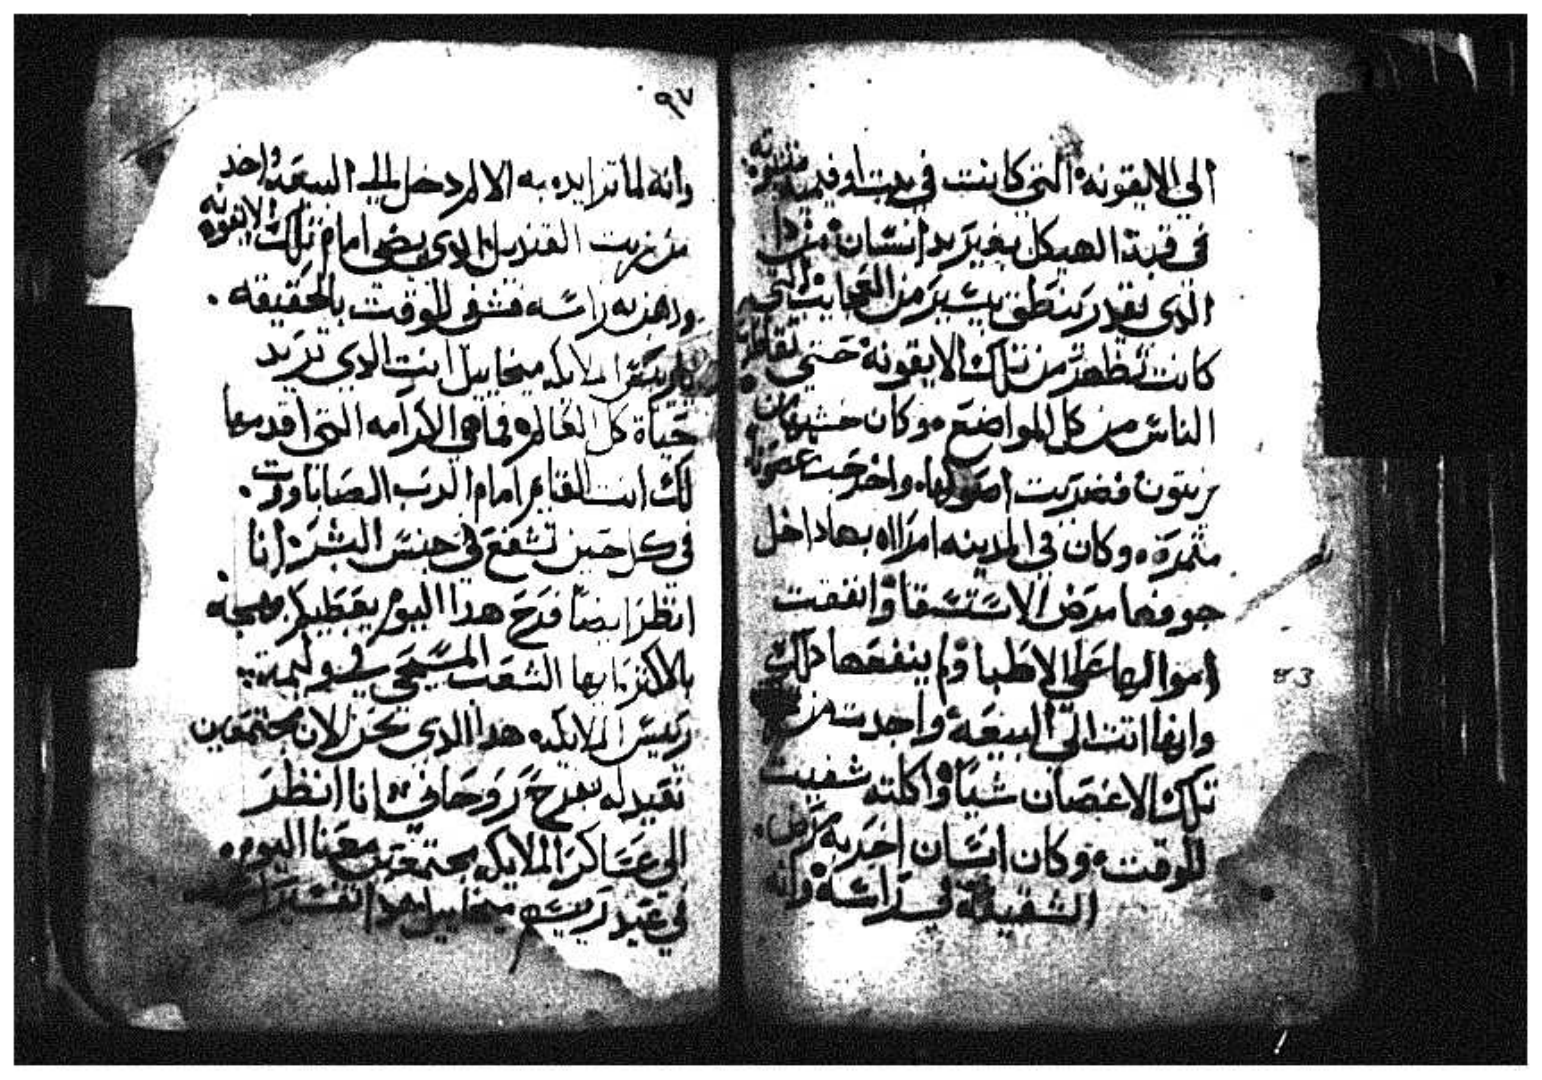 الي الايقونه التي كانت في بيت اوفيميه
في قبة الهيكل بغير يد انسان من دا
الدي يقدر ينطق بيسير من العجايب التي
كانت تظهر من تلك الايقونة حتى
الناس من كل المواضع وكان خشبة من
زيتون فضربت اصولها واخرجت
مثمرة وكان في المدينه امراه بها داخل
جوفها مرض الاستسقا وانفقت
اموالها علي الاطبا ولم ينفعها دلك
وانها اتت الي البيعة واخدت من
تلك الاغصان شيا واكلته شفيت
للوقت وكان انسان اخر به مرض
الشقيقة في راسة وانه
٩٧
وانه لما تزايد به الالم دخل الي البيعة واخد
من زيت القنديل الدي يضي امام تلك الايقونه
ودهن به راسه فشفي للوقت بالحقيقه
يا رييس الملايكه ميخاييل انت الدي تريد
حياة كل العالم وما هي الكرامه التي اقدمها
لك انت القايم امام الرب الصاباووت
في كل حين تشفع في جنس البشر انا
انظر ايضا فرح هدا اليوم يعظيكم بهجه
بالاكثر يا ايها الشعب المسيحي في وليمة
رييس الملايكه هدا الدي نحن الان مجتمعين
نعيد له بفرح روحاني انا انظر
الي عساكر الملايكه مجتمعين معنا اليوم
في عيد رييسهم ميخاييل هدا